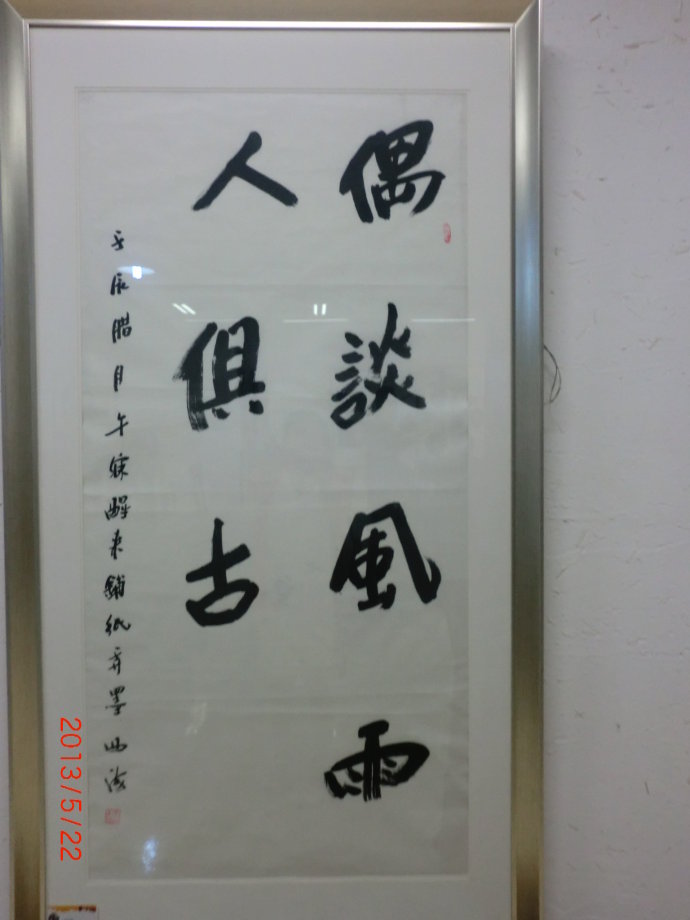 偶談風雨
人俱古
壬辰腊月午寐醒来鋪紙弄墨
2013/5/22